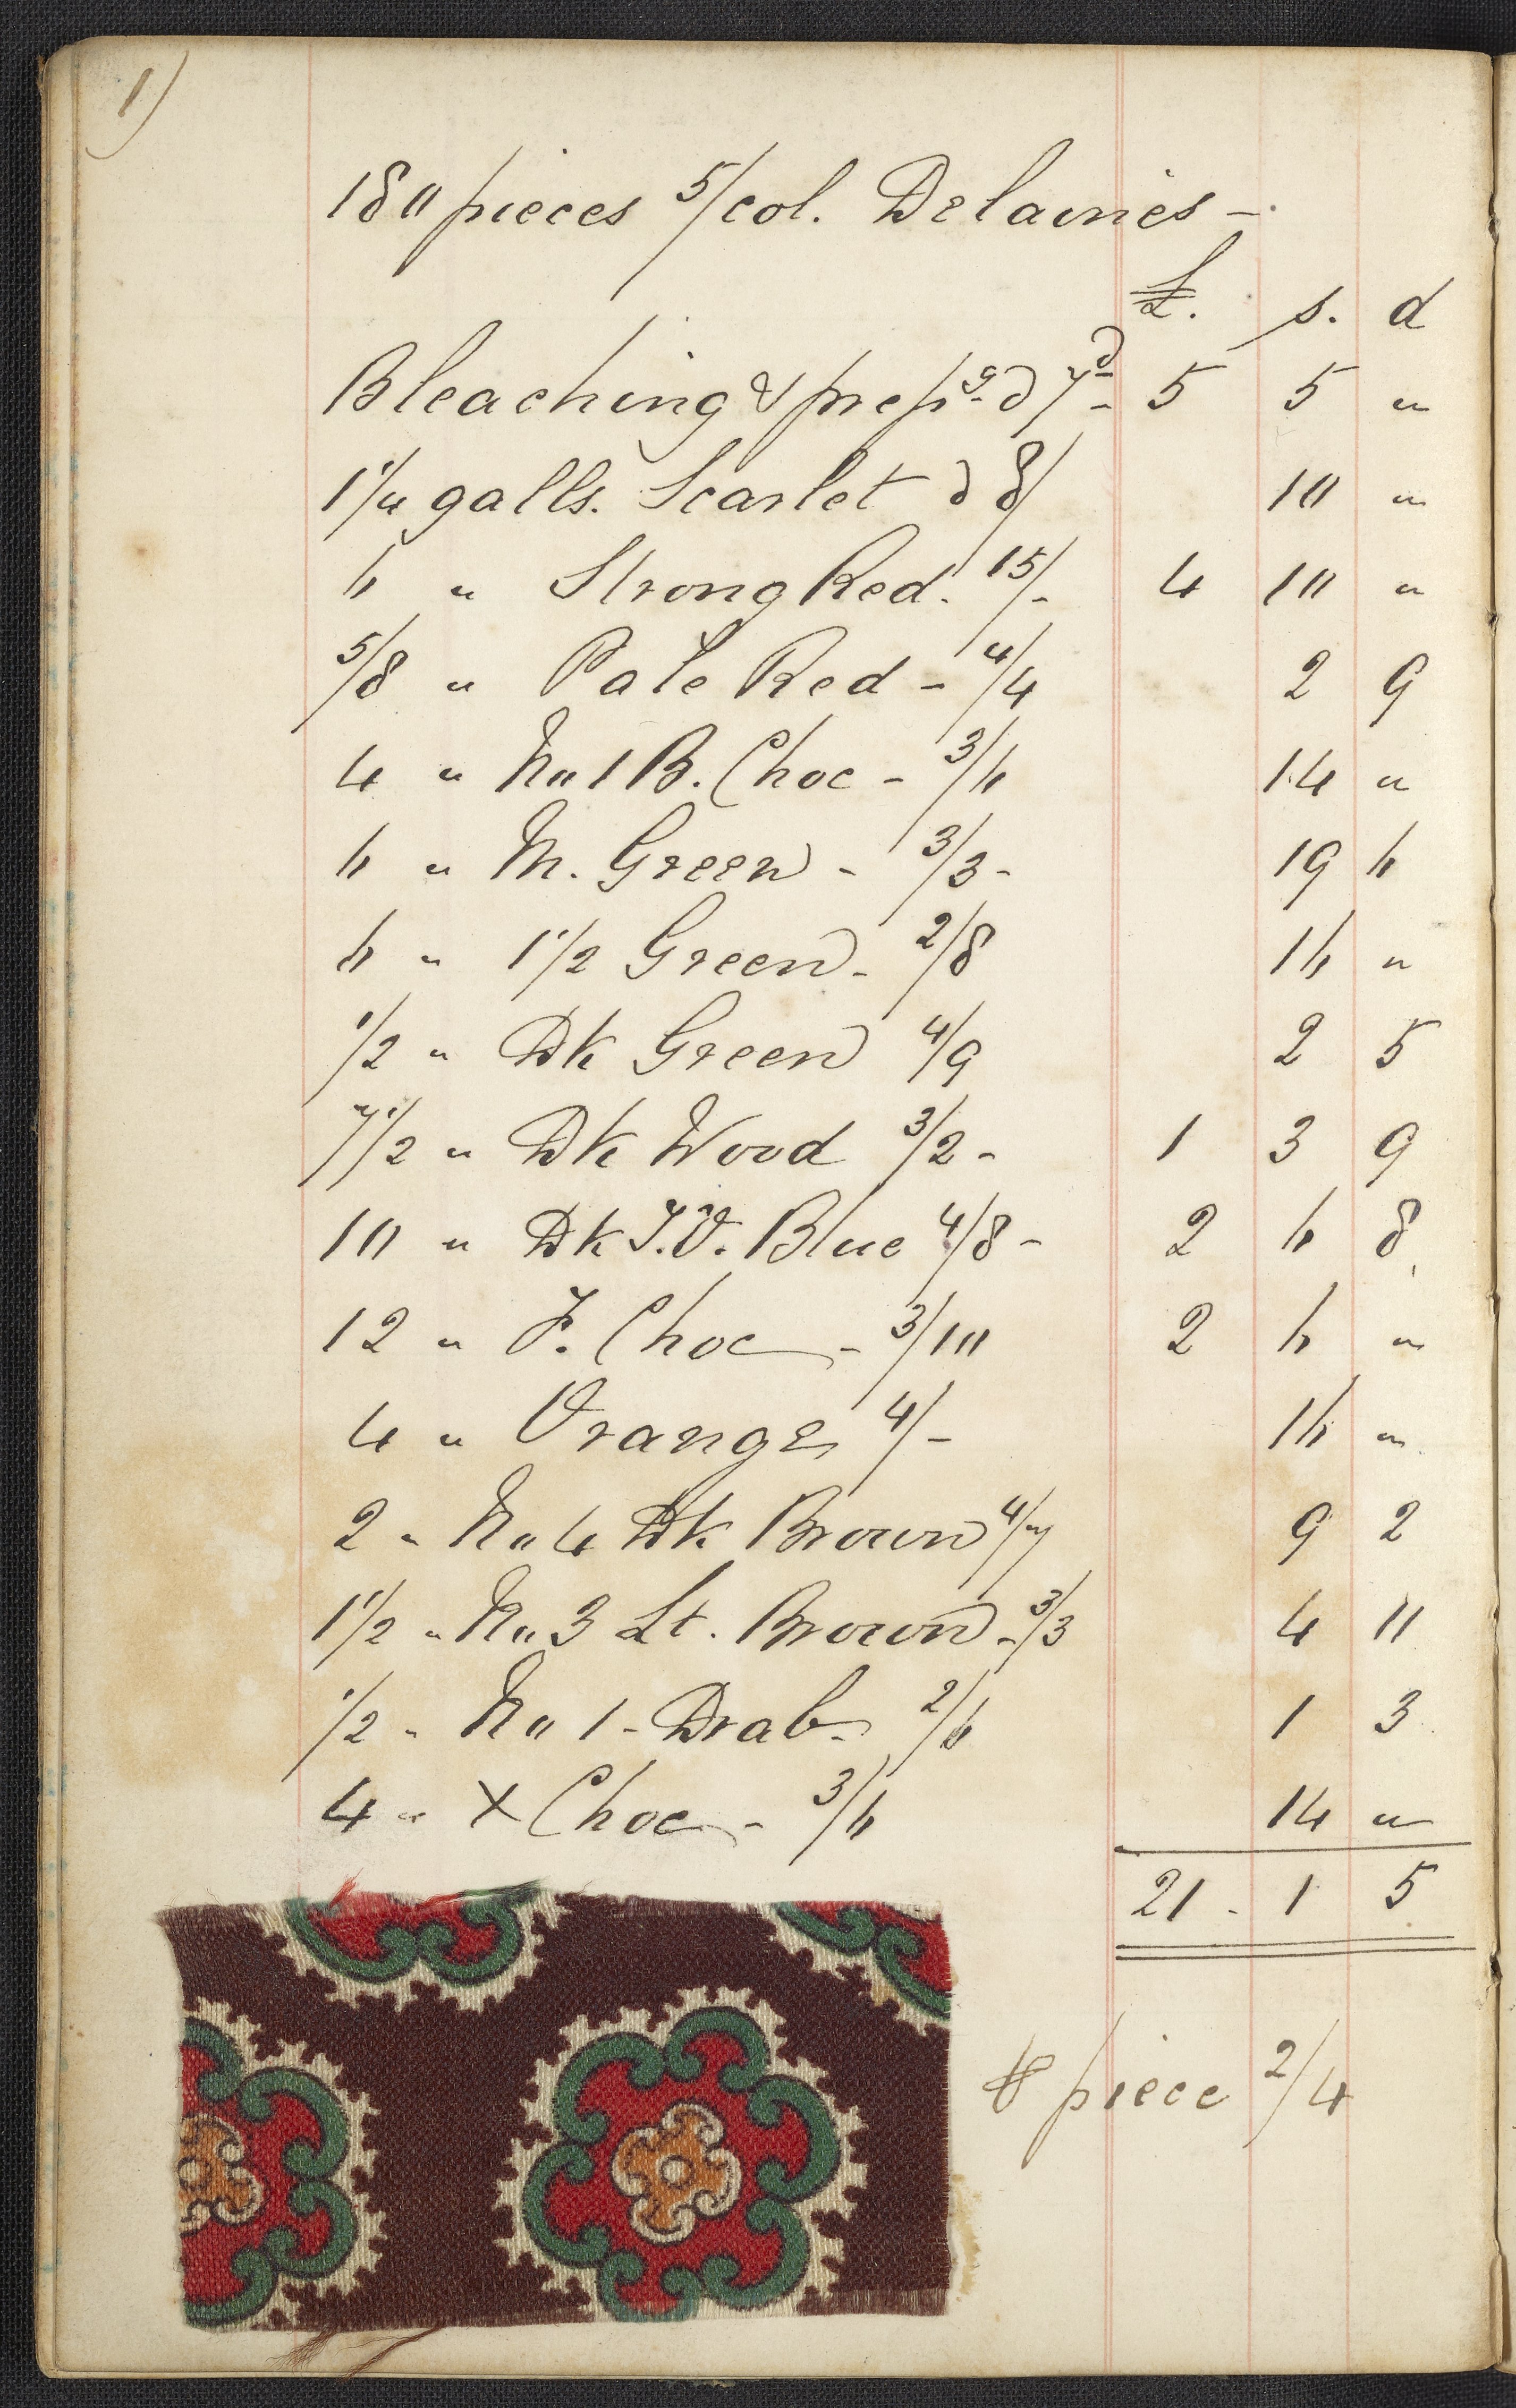 1)
180 pieces 5/col. Delaines -
£. s. d
Bleaching & prepg. @ 7d - 5 5 "
1 1/4 galls. Scarlet @ 8/ 10 "
6 " Strong Red. 15/- 4 10 "
5/8 " Pale Red - 4/4 2 9
4 " No 1 B. Choc - 3/6 14 "
6 " M. Green - 3/3 - 19 6
6 " 1 1/2 Green - 2/8 16 "
1/2 " Dk Green 4/9 2 5
7 1/2 " Dk Wood 3/2 - 1 3 9
10 " Dk T.V. Blue 4/8 - 2 6 8
12 " F. Choc - 3/10 2 6 "
4 " Orange 4/- 16 "
2 " No 4 Dk Brown 4/7 9 2
1 1/2 " No 3 Lt. Brown - 3/3 4 11
1/2 " No 1 - Drab - 2/6 1 3
4 " X Choc - 3/6 14 "
21 - 1 5
⅌ piece 2/4